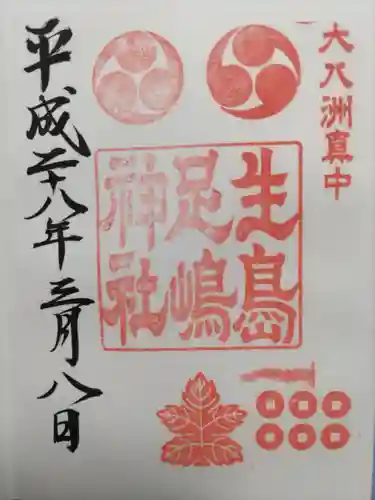 大八洲真中
生島
足嶋
神社
平成二十八年三月八日